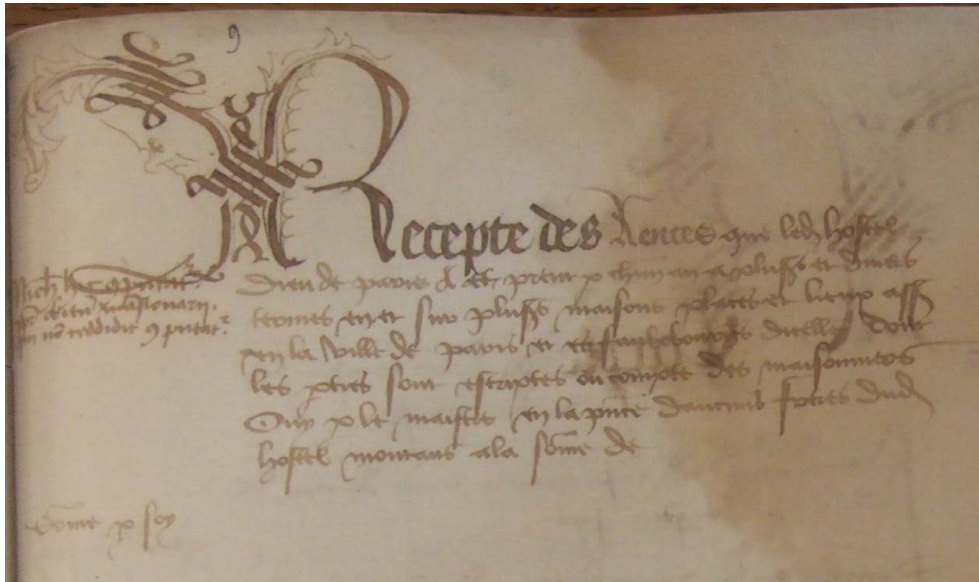 Recepte des Rentes que led hostel
Dieu de paris a et prent p chun an a plusrs et divers
termes en et sur plusrs maisons places et lieux assis
en la ville de paris et es faulxbourgs dicelle dont
les pties sont escriptes ou compte des maisonniers
Ouy p le maistre en la pnce daucuns freres dud
hostel montans a la some de
Some p soy